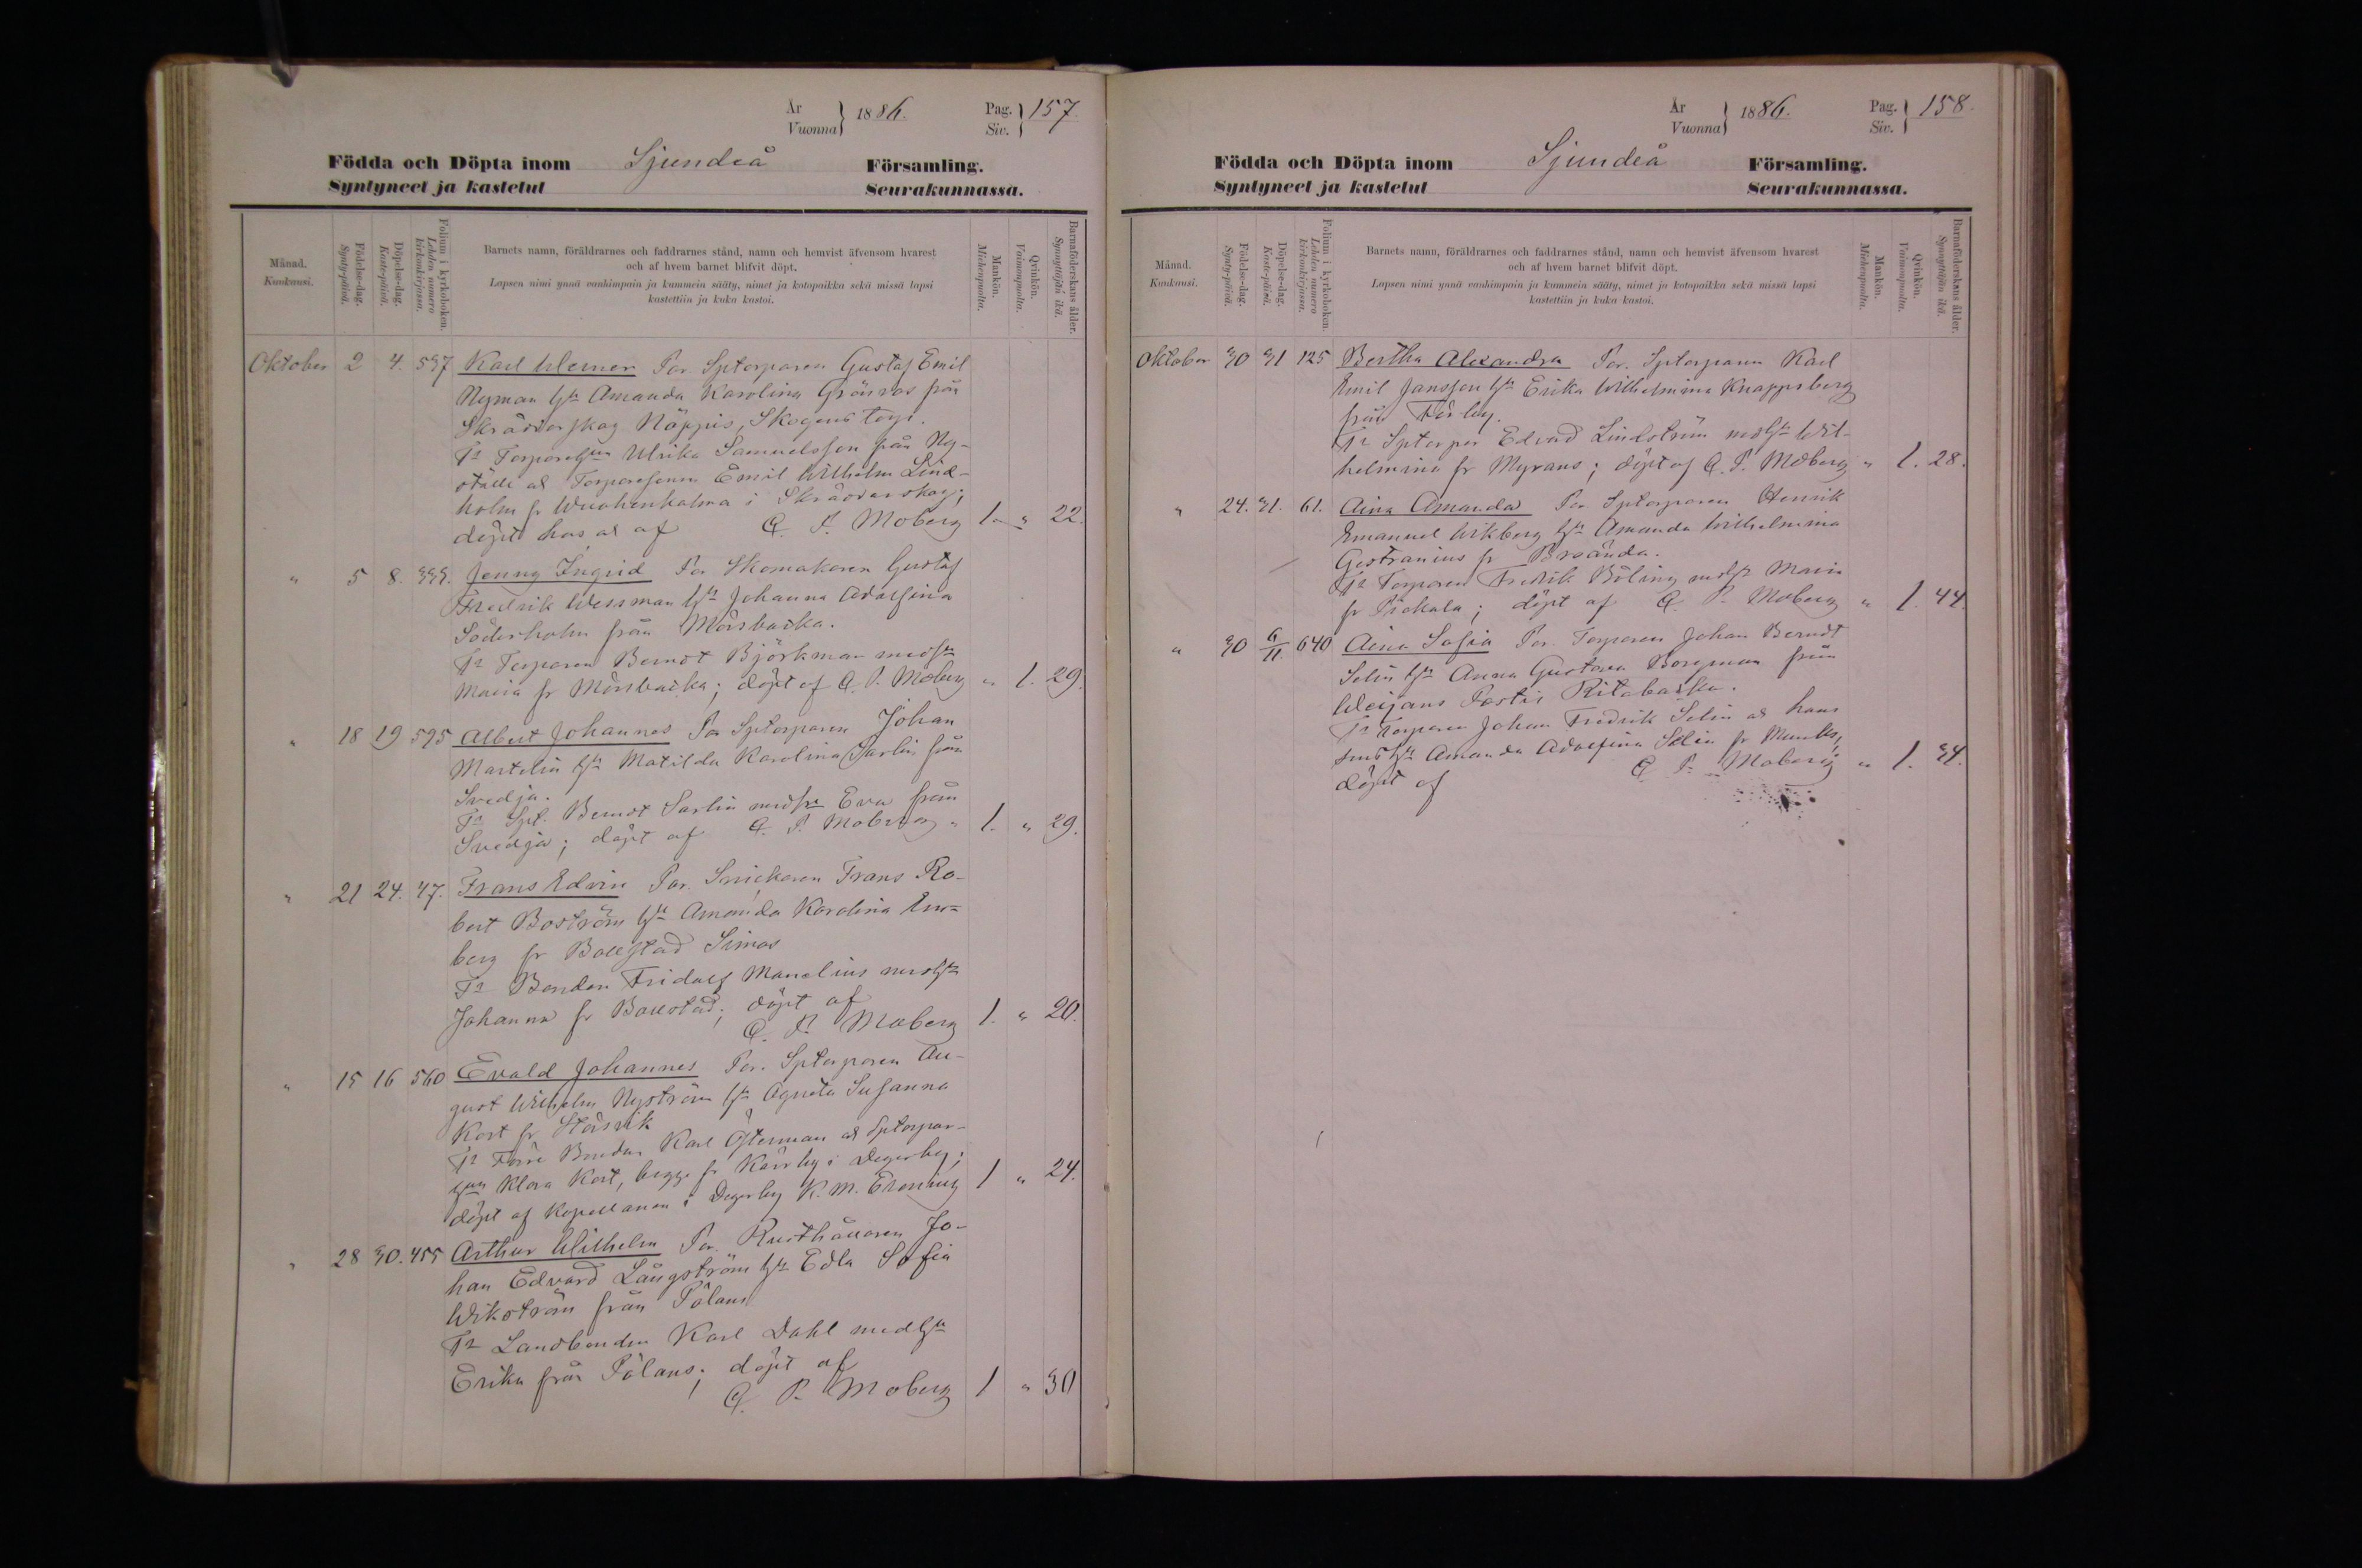 År
Vuonna
1886.
Pag.
Siv.
157.
Födda och Döpta inom Sjundeå Församling.
Syntyneet ja kastetut Seurakunnassa.
Månad.
Kuukausi.
Födelse-dag.
Synty-päivä.
Döpelse-dag.
Kaste-päivä.
Folium i kyrkoboken.
Lehden numero kirkonkirjassa.
Barnets namn, föräldrarnes och faddrarnes stånd, namn och hemvist äfvensom hvarest
och af hvem barnet blifvit döpt.
Lapsen nimi ynnä vanhimpain ja kummein sääty, nimet ja kotopaikka sekä missä lapsi
kastettiin ja kuka kastoi.
Mankön.
Miehenpuolta.
Qvinkön.
Vaimonpuolta.
Barnaföderskans ålder.
Synnyttäjän ikä.
Oktober 2 4. 537 Karl Werner Par. Sptorparen Gustaf Emil
Nyman hu Amanda Karolina Grönroos från
Skräddarskog Näppis, Skogens torp.
Fr Torparehun Ulrika Samuelsson från Ny-
ställe as Torparesonen Emil Wilhelm Lind-
holm fr i Skräddarskog;
döpt hos as af A. P. Moberg 1. " 22.
" 5 8. 335. Jenny Ingrid Par Skomakaren Gustaf
Fredrik Wessman hu Johanna Adolfina
Söderholm från Mörsbacka.
Fr Torparen Berndt Björkman med hu
Maria fr Mörsbacka; döpt af A. P. Moberg " 1. 29.
" 18 19 595 Albert Johannes Par Sptorparen Johan
Martelin hu Matilda Karolina Sarlin från
Svedja.
Fr Spt. Berndt Sarlin med hu Eva från
Svedja; döpt af A. P. Moberg " 1. " 29.
" 21 24. 47. Frans Edvin Par. Snickaren Frans Ro-
bert Boström hu Amanda Karolina En-
berg fr Bollstad Simos
Fr Bonden Fridolf Manelius med hu
Johanna fr Bollstad; döpt af
A. P. Moberg 1. " 20.
" 15 16 560 Evald Johannes Par. Sptorparen Au-
gust Wilhelm Nyström hu Agneta Susanna
Kort fr Störsvik
Fr Förre Bonden Karl Österman as Sptorpar-
hun Klara Kort, begge fr Kärrby i Degerby;
döpt af Kapellanen i Degerby K. M. 1 " 24.
" 28 30. 455 Arthur Wilhelm Par. Rusthållaren Jo-
han Edvard Långström hu Edla Sofia
Wikström från Pålans
Fr Landbonden Karl Dahl med hu
Erika från Pålans; döpt af
A. P. Moberg 1 " 30
År
Vuonna
1886.
Pag.
Siv.
158.
Födda och Döpta inom Sjundeå Församling.
Syntyneet ja kastetut Seurakunnassa.
Månad.
Kuukausi.
Födelse-dag.
Synty-päivä.
Döpelse-dag.
Kaste-päivä.
Folium i kyrkoboken.
Lehden numero kirkonkirjassa.
Barnets namn, föräldrarnes och faddrarnes stånd, namn och hemvist äfvensom hvarest
och af hvem barnet blifvit döpt.
Lapsen nimi ynnä vanhimpain ja kummein sääty, nimet ja kotopaikka sekä missä lapsi
kastettiin ja kuka kastoi.
Mankön.
Miehenpuolta.
Qvinkön.
Vaimonpuolta.
Barnaföderskans ålder.
Synnyttäjän ikä.
Oktober 30 31 125 Bertha Alexandra Par. Sptorparen Karl
Emil Jansson hu Erika Wilhelmina Knappsberg
från Fårby.
Fr Sptorpar Edvard Lindström med hu Wil-
helmina fr Myrans; döpt af A. P. Moberg " 1. 28.
" 24. 31. 61. Aina Amanda Par Sptorparen Henrik
Emanuel Wikberg hu Amanda Wilhelmina
Gestranius fr Broända.
Fr Torparen Fredrik Böling med hu Maria
fr Pickala; döpt af A. P. Moberg " 1. 44.
" 30 6/11. 640 Aina Sofia Par. Torparen Johan Berndt
Selin hu Anna Gustava Borgman från
Weijans Ritobacka.
Fr Torparen Johan Fredrik Selin as hans
hu Amanda Adolfina Selin fr Munks;
döpt af A. P. Moberg " 1. 34.